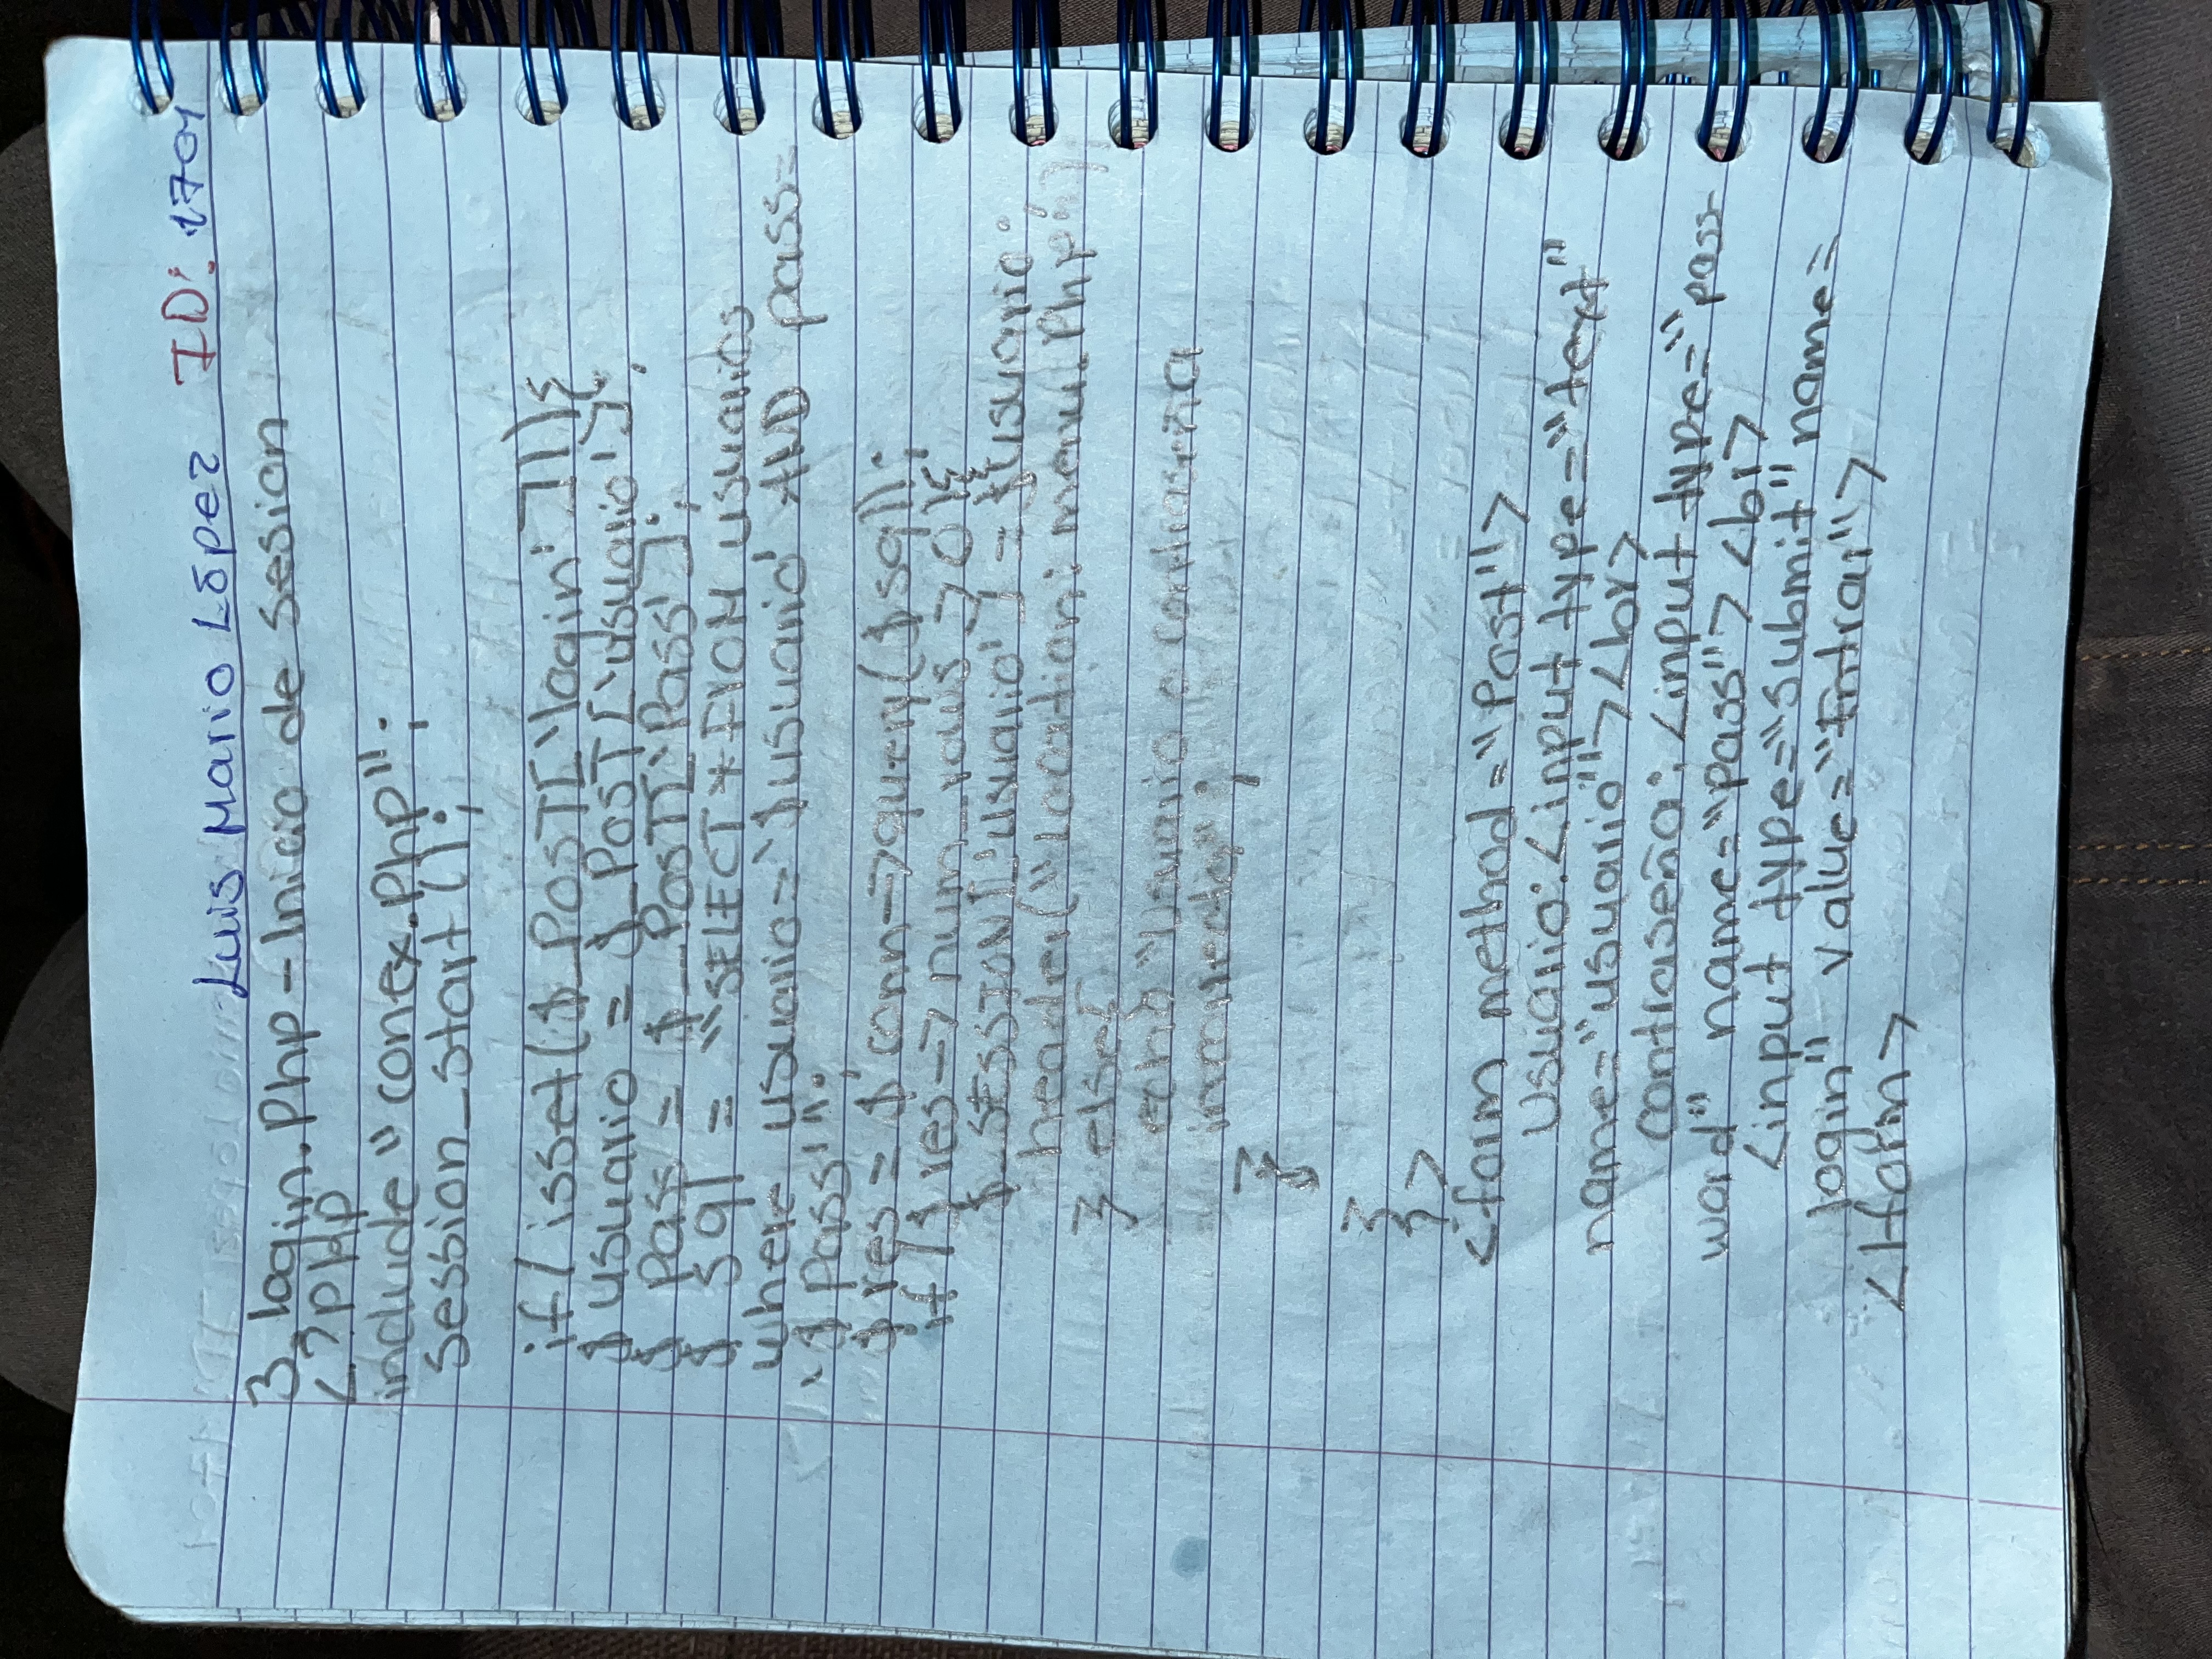 Luis Mario López ID: 1701
3. login.Php - Inicio de sesion
<?PHP
include "conex.Php";
session_start();
if(isset($_POST['login'])){
$usuario = $_POST['usuario'];
$Pass = $_POST['Pass'];
$sql = "SELECT * FROM usuarios
where usuario='$usuario' AND pass=
'$pass'";
$res = $conn->query($sql);
if($res->num_rows>0){
$_SESSION['usuario'] = $usuario;
header("location: menu.Php");
} else{
echo "Usuario o contraseña
incorrectos";
}
}
}
?>
<form method="Post">
usuario: <input type="text"
name="usuario"><br>
contraseña: <input type="pass-
word" name="pass"> <br>
<input type="submit" name=
login" value="Entrar">
</form>